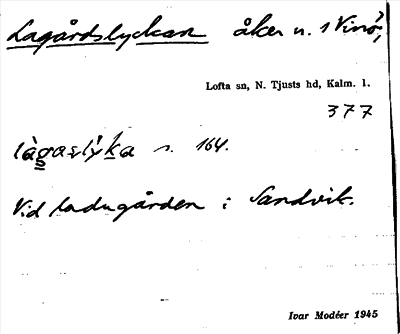 Lagårdslyckan åker n. 1 Vinö,
Lofta sn, N. Tjusts hd, Kalm. l.
377
làgaslýka s. 164.
Vid ladugården i Sandvik.
Ivar Modéer 1945